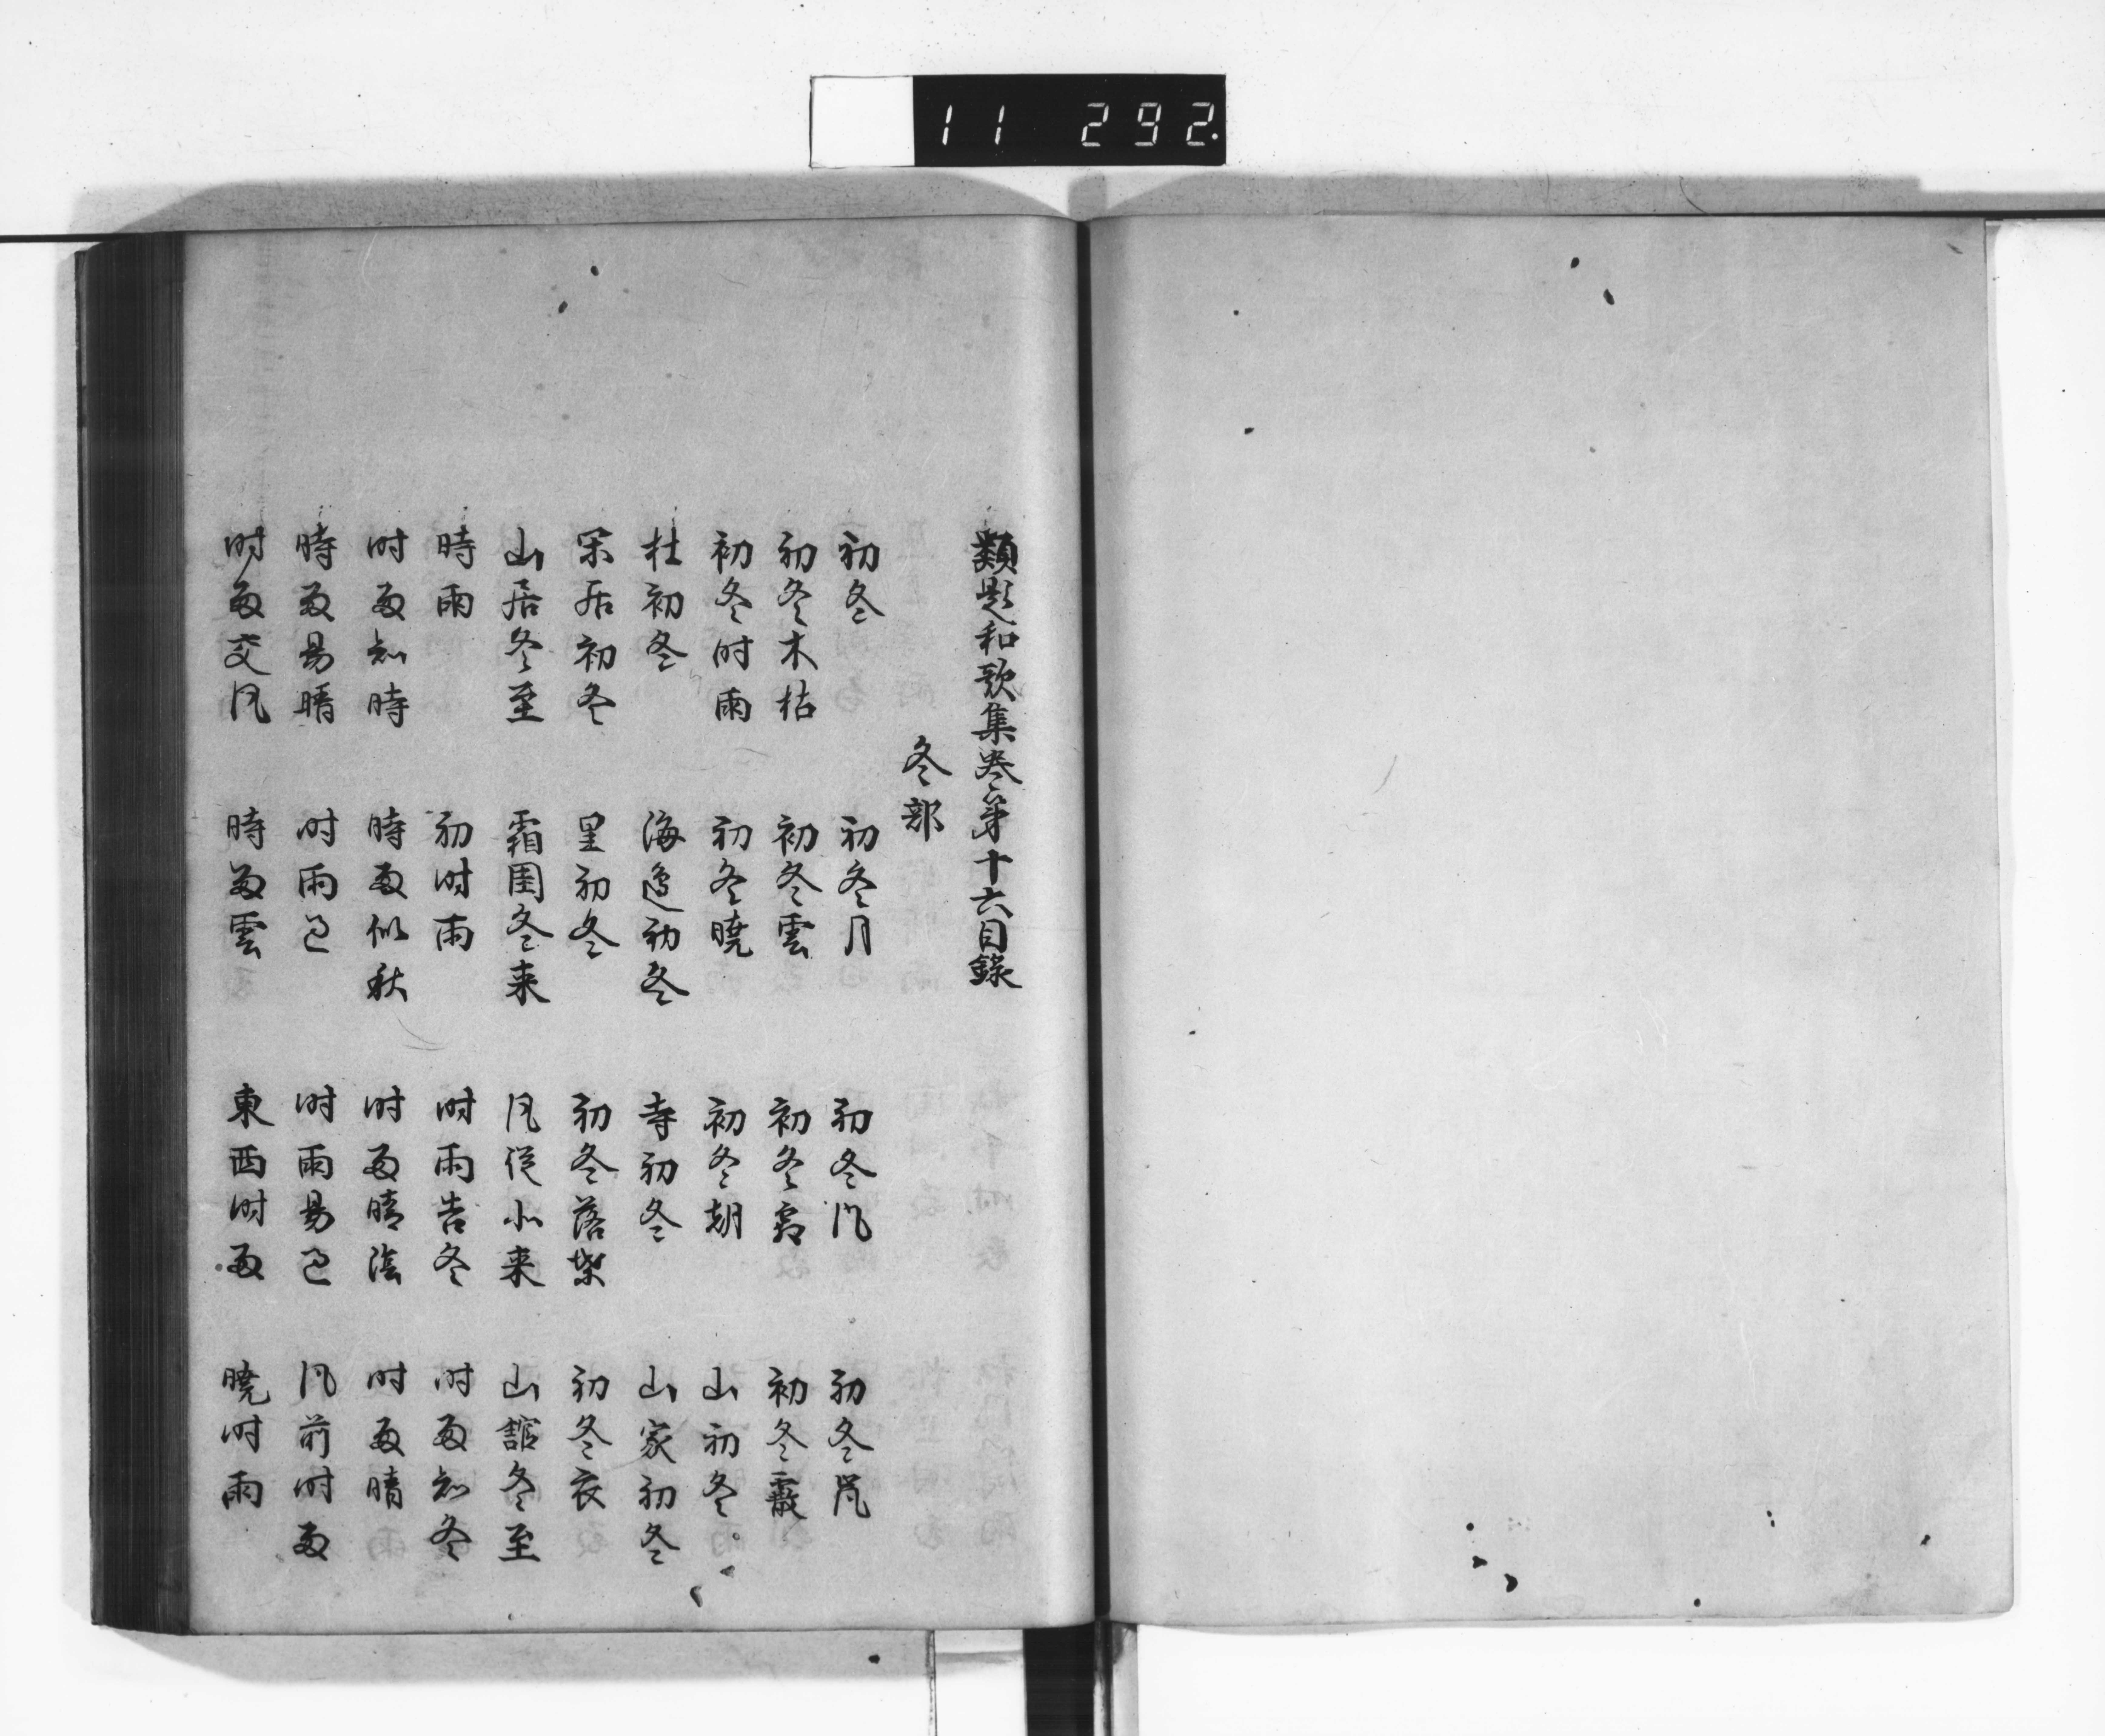 11 292.
類題和歌集巻第十六目録
冬部
初冬 初冬月 初冬風 初冬嵐
初冬木枯 初冬雲 初冬霜 初冬霰
初冬时雨 初冬暁 初冬朝 山初冬
杜初冬 海邊初冬 寺初冬 山家初冬
閑居初冬 里初冬 初冬落葉 初冬衣
山居冬至 霜園冬来 風従北来 山館冬至
時雨 初时雨 时雨告冬 时雨知冬
时雨知時 時雨似秋 时雨晴陰 时雨晴
時雨易晴 时雨過 时雨易過 風前时雨
时雨交風 時雨雲 東西时雨 暁时雨